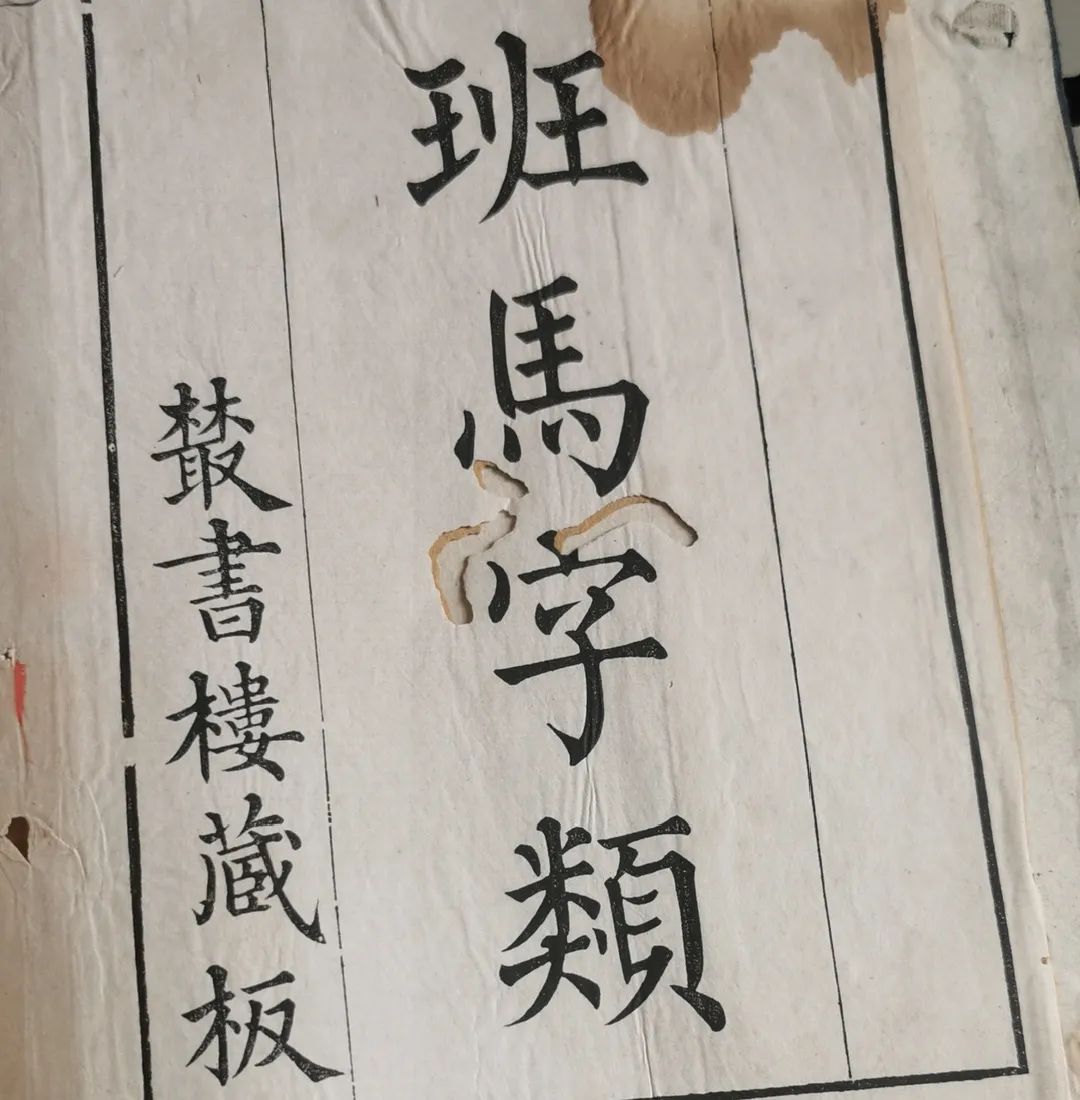 班馬字類
叢書樓藏板